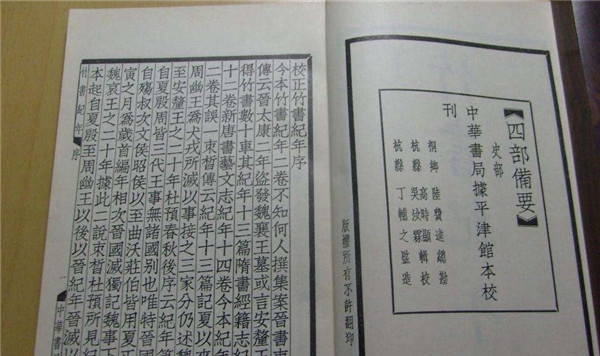 四部備要
史部
中華書局據平津館本校
刊
桐鄉 陸費逵總勘
杭縣 高時顯輯校
吳汝霖
杭縣 丁輔之監造
版權所有不許翻印
校正竹書紀年序
今本竹書紀年二卷不知何人撰集案晉書束
傳云晉太康二年盜發魏襄王墓或言安釐王
得竹書數十車其紀年十三篇隋書經籍志紀
十二卷新唐書藝文志紀年十四卷今本紀年
二卷其誤束晳傳云紀年十三篇記夏以來
周幽王為犬戎所滅以事接之三家分仍述魏
至安釐王之二十年杜預春秋後序云紀年
自夏殷周皆三代王事無諸國別也唯特晉國
自殤叔次文侯昭侯以至曲沃莊伯皆用夏正
寅之月為歲首編年相次晉國滅獨記魏事下
魏哀王之二十年據此二說束晳杜預所見紀
本起自夏殷至周幽王以後以晉紀年晉滅以
竹書紀年 序
一
中華書